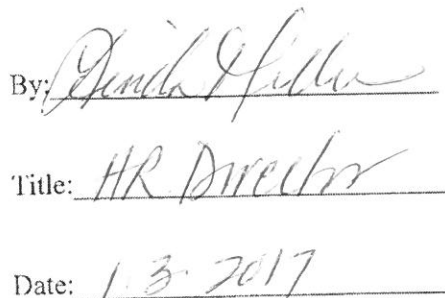 By:
Title: HR Director
Date: 1.3.2017